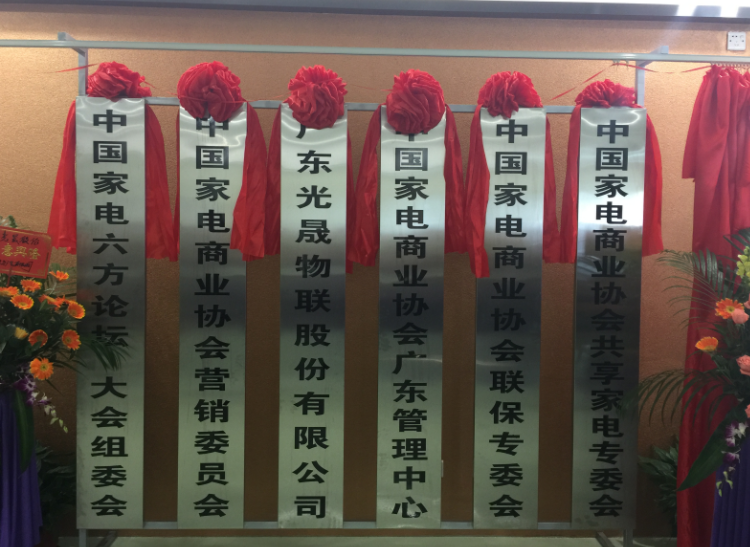 中国家电六方论坛大会组委会
中国家电商业协会营销委员会
广东光晟物联股份有限公司
中国家电商业协会广东管理中心
中国家电商业协会联保专委会
中国家电商业协会共享家电专委会